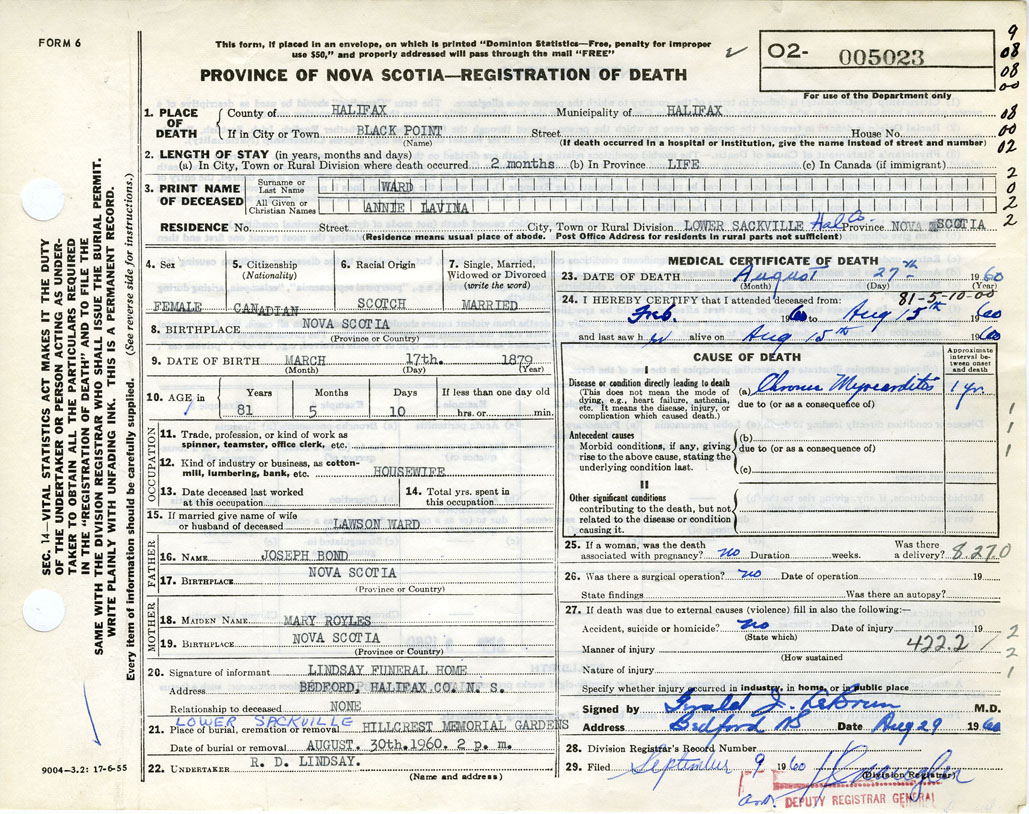 FORM 6
This form, if placed in an envelope, on which is printed "Dominion Statistics—Free, penalty for improper
use $50," and properly addressed will pass through the mail "FREE"
PROVINCE OF NOVA SCOTIA—REGISTRATION OF DEATH
O2- 005023
For use of the Department only
9
08
08
00
18
00
02
2
0
2
2
1. PLACE OF DEATH
County of HALIFAX Municipality of HALIFAX
If in City or Town BLACK POINT Street House No.
(Name) (If death occurred in a hospital or institution, give the name instead of street and number)
2. LENGTH OF STAY (in years, months and days)
(a) In City, Town or Rural Division where death occurred 2 months (b) In Province LIFE (c) In Canada (if immigrant)
3. PRINT NAME OF DECEASED
Surname or Last Name WARD
All Given or Christian Names ANNIE LAVINA
RESIDENCE No. Street City, Town or Rural Division LOWER SACKVILLE Hal Co. Province NOVA SCOTIA
(Residence means usual place of abode. Post Office Address for residents in rural parts not sufficient)
4. Sex
FEMALE
5. Citizenship
(Nationality)
CANADIAN
6. Racial Origin
SCOTCH
7. Single, Married,
Widowed or Divorced
(write the word)
MARRIED
8. BIRTHPLACE NOVA SCOTIA
(Province or Country)
9. DATE OF BIRTH MARCH 17th. 1879
(Month) (Day) (Year)
10. AGE in
Years Months Days If less than one day old
81 5 10 hrs. or min.
OCCUPATION
11. Trade, profession, or kind of work as
spinner, teamster, office clerk, etc.
12. Kind of industry or business, as cotton-
mill, lumbering, bank, etc. HOUSEWIFE
13. Date deceased last worked
at this occupation
14. Total yrs. spent in
this occupation
15. If married give name of wife
or husband of deceased LAWSON WARD
FATHER
16. NAME JOSEPH BOND
17. BIRTHPLACE NOVA SCOTIA
(Province or Country)
MOTHER
18. MAIDEN NAME MARY ROYLES
19. BIRTHPLACE NOVA SCOTIA
(Province or Country)
20. Signature of informant LINDSAY FUNERAL HOME
Address BEDFORD, HALIFAX CO. N. S.
Relationship to deceased NONE
LOWER SACKVILLE
21. Place of burial, cremation or removal HILLCREST MEMORIAL GARDENS
Date of burial or removal AUGUST. 30th.1960. 2 p. m.
22. UNDERTAKER R. D. LINDSAY.
(Name and address)
MEDICAL CERTIFICATE OF DEATH
23. DATE OF DEATH August 27th 1960
(Month) (Day) (Year)
81-5-10-00
24. I HEREBY CERTIFY that I attended deceased from:
Feb. 1960 to Aug 15th 1960
and last saw her alive on Aug 15th 1960
CAUSE OF DEATH
Approximate interval between onset and death
I
Disease or condition directly leading to death
(This does not mean the mode of
dying, e.g., heart failure, asthenia,
etc. It means the disease, injury, or
complication which caused death.)
(a) Chronic Myocarditis 1 yr.
due to (or as a consequence of)
Antecedent causes
Morbid conditions, if any, giving
rise to the above cause, stating the
underlying condition last.
(b)
due to (or as a consequence of)
(c)
II
Other significant conditions
contributing to the death, but not
related to the disease or condition
causing it.
1
1
1
25. If a woman, was the death
associated with pregnancy? no Duration weeks. Was there
a delivery? 8.270
26. Was there a surgical operation? no Date of operation 19
State findings Was there an autopsy?
27. If death was due to external causes (violence) fill in also the following:—
Accident, suicide or homicide? no Date of injury 19
(State which)
Manner of injury 422.2
(How sustained
Nature of injury
2
2
1
Specify whether injury occurred in industry, in home, or in public place
Signed by M.D.
Address Bedford NS Date Aug 29 1960
28. Division Registrar's Record Number
29. Filed September 9 1960
(Division Registrar)
DEPUTY REGISTRAR GENERAL
SEC. 14—VITAL STATISTICS ACT MAKES IT THE DUTY
OF THE UNDERTAKER OR PERSON ACTING AS UNDER-
TAKER TO OBTAIN ALL THE PARTICULARS REQUIRED
IN THE "REGISTRATION OF DEATH" AND TO FILE THE
SAME WITH THE DIVISION REGISTRAR WHO SHALL ISSUE THE BURIAL PERMIT.
WRITE PLAINLY WITH UNFADING INK. THIS IS A PERMANENT RECORD.
Every item of information should be carefully supplied. (See reverse side for instructions.)
9004—3.2: 17-6-55